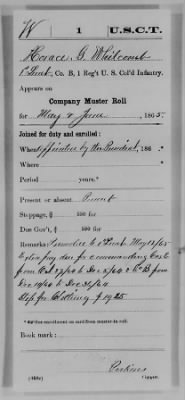 W 1 U.S.C.T.
Horace G. Whitcomb
1 Lieut, Co. B, 1 Reg't U. S. Col'd Infantry.
Appears on
Company Muster Roll
for May & June, 1865.
Joined for duty and enrolled:
When Appointed by the President, 186 *
Where *
Period years.*
Present or absent Present
Stoppage, $ 100 for
Due Gov't, $ 100 for
Remarks: to 1 Lieut May 13/65
pay due for commanding Co
from Oct 27/64 to Dec 5/64 & Co B from
Dec 19/64 to Dec 31/64
for Clothing $ 19.25
*See enrollment on card from muster-in roll.
Book mark:
(858c) Copyist.